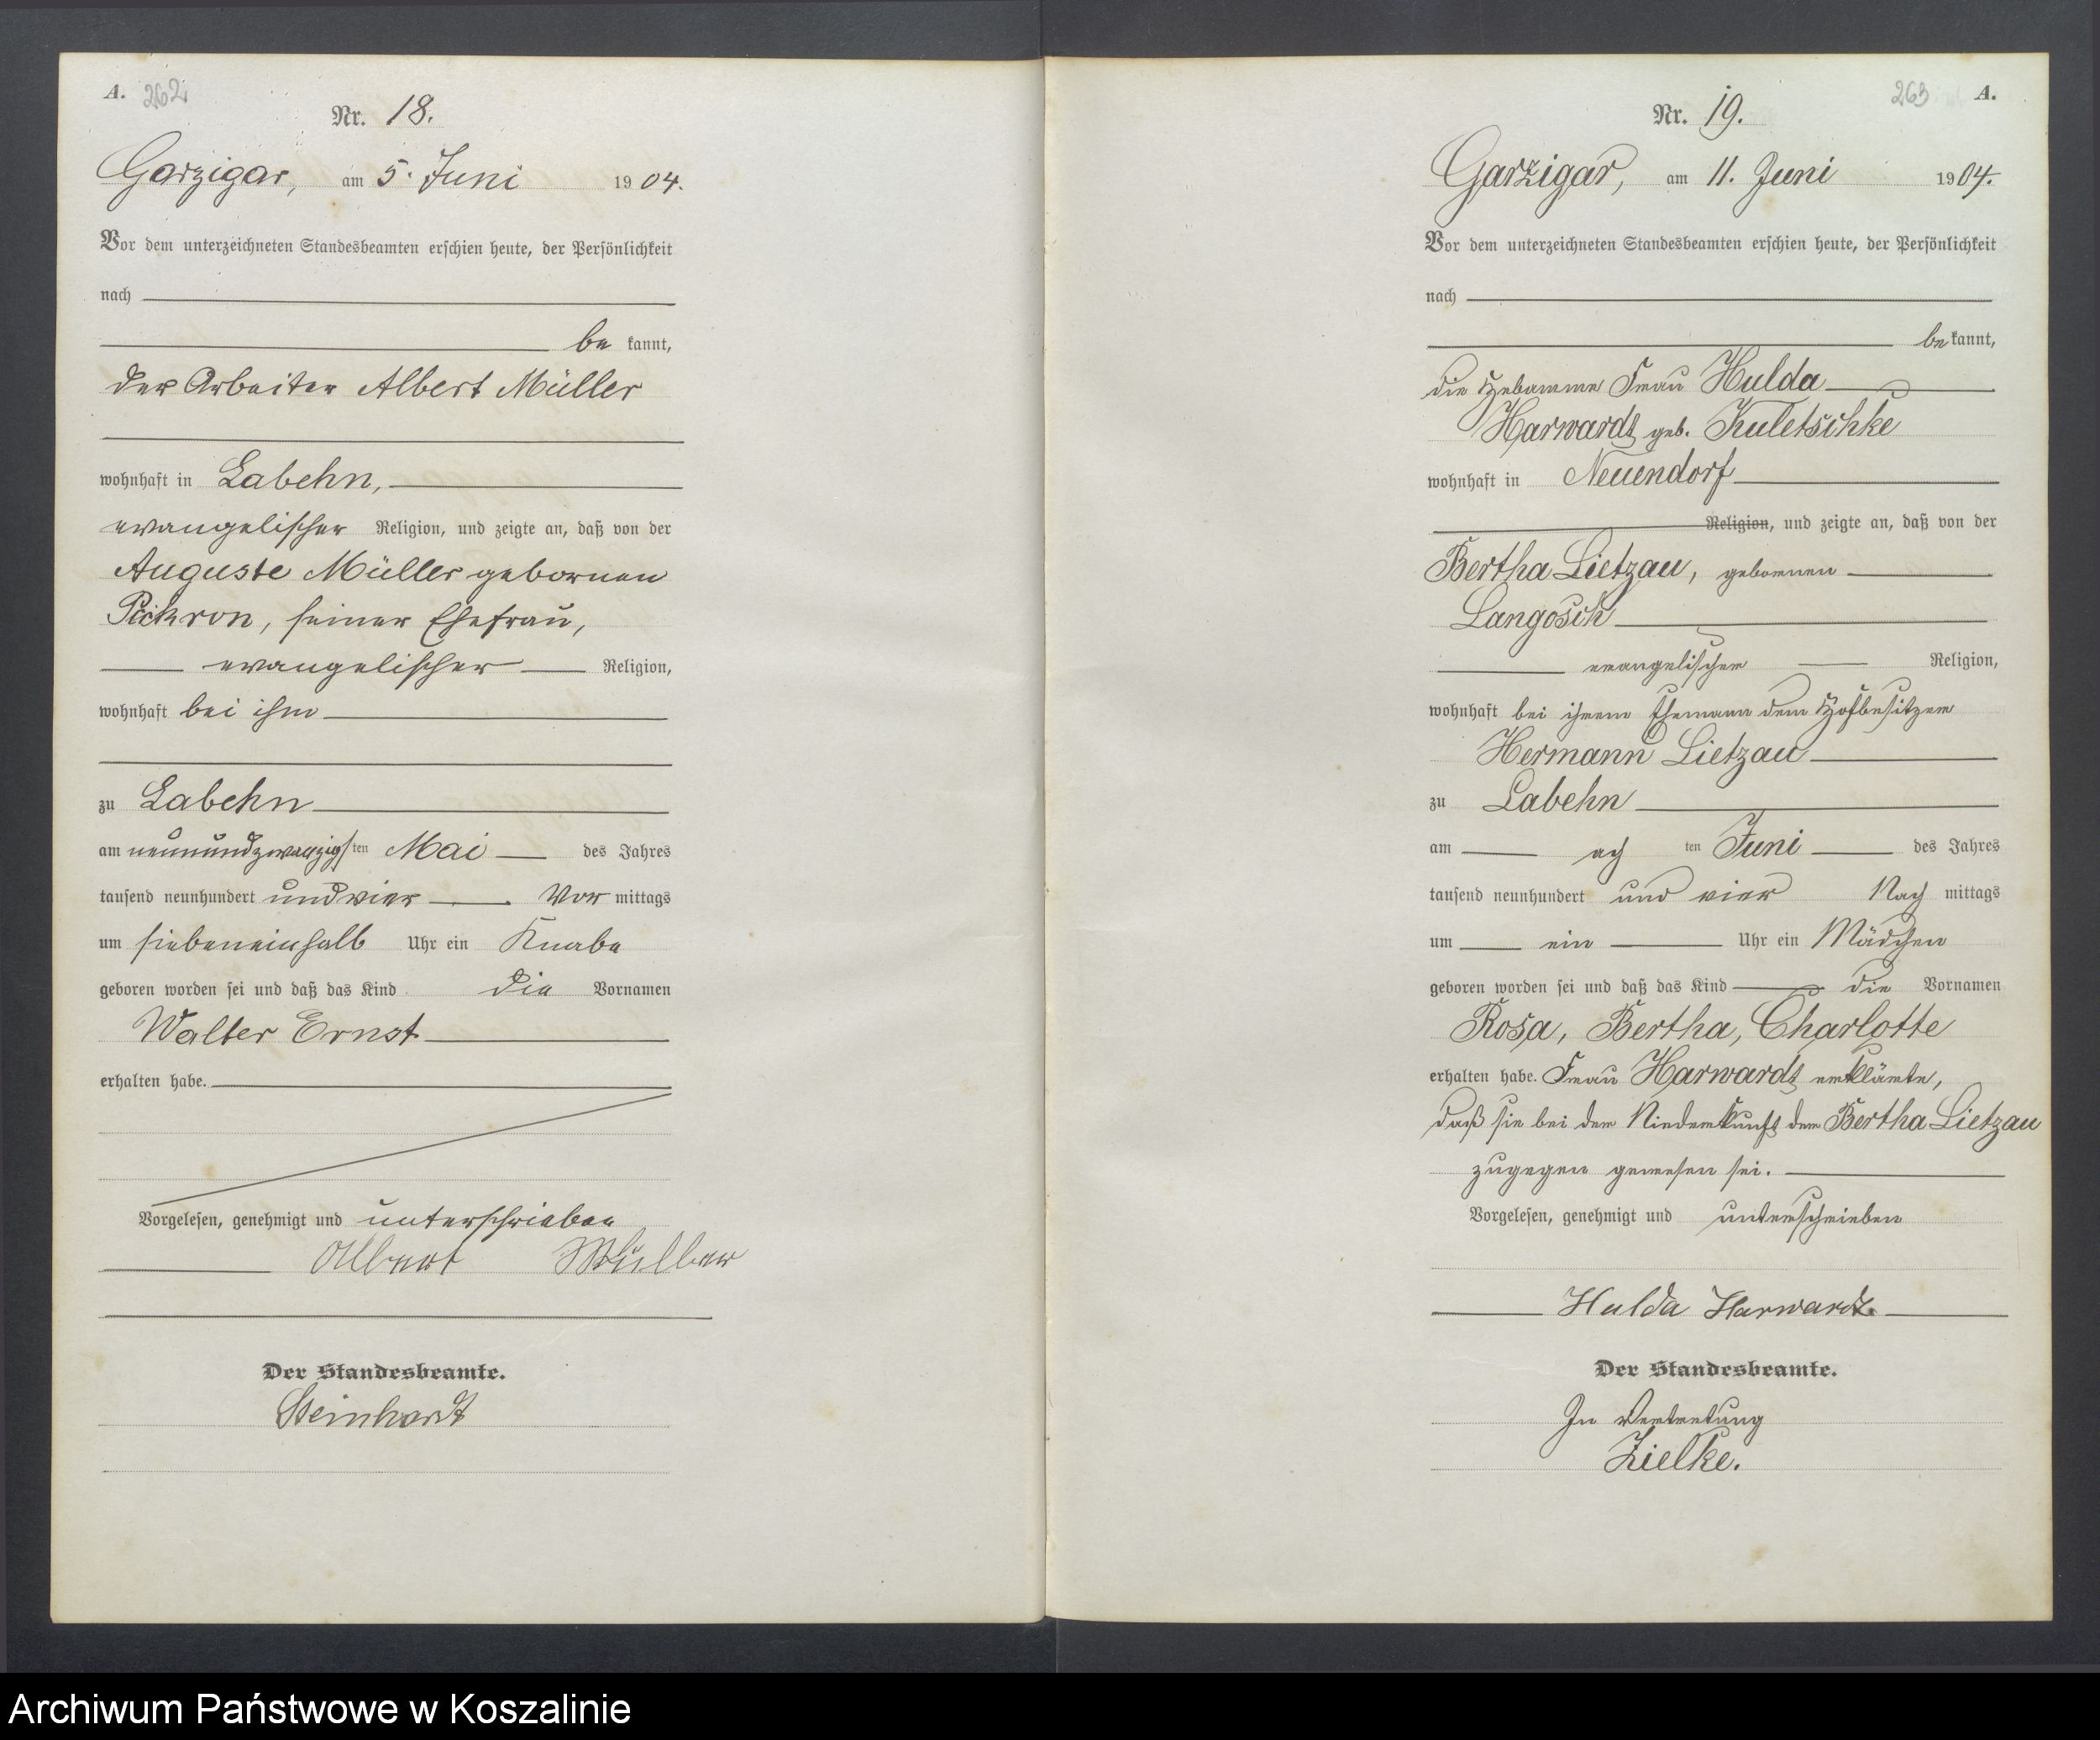 A. 262
Nr. 18.
Garzigar, am 5. Juni 1904.
Vor dem unterzeichneten Standesbeamten erschien heute, der Persönlichkeit
nach
be kannt,
der Arbeiter Albert Müller
wohnhaft in Labehn,
evangelischer Religion, und zeigte an, daß von der
Auguste Müller gebornen
seiner Ehefrau,
evangelischer Religion,
wohnhaft bei ihm
zu Labehn
am neunundzwanzigsten Mai des Jahres
tausend neunhundert und vier Vor mittags
um siebeneinhalb Uhr ein Knabe
geboren worden sei und daß das Kind die Vornamen
Walter Ernst
erhalten habe.
Vorgelesen, genehmigt und unterschrieben
Albert Müller
Der Standesbeamte.
Steinhardt
263 A.
Nr. 19.
Garzigar, am 11. Juni 1904.
Vor dem unterzeichneten Standesbeamten erschien heute, der Persönlichkeit
nach
be kannt,
die Hebamme Frau Hulda
Harwardt geb. Kuletschke
wohnhaft in Neuendorf
Religion, und zeigte an, daß von der
Bertha Lietzau, gebornen
Langosch
evangelischer Religion,
wohnhaft bei ihrem Ehemann dem Hofbesitzer
Hermann Lietzau
zu Labehn
am ach ten Juni des Jahres
tausend neunhundert und vier Nach mittags
um ein Uhr ein Mädchen
geboren worden sei und daß das Kind die Vornamen
Rosa, Bertha, Charlotte
erhalten habe. Frau Harwardt erklärte,
daß sie bei der Niederkunft der Bertha Lietzau
zugegen gewesen sei.
Vorgelesen, genehmigt und unterschrieben
Hulda Harwardt.
Der Standesbeamte.
In Vertretung
Zielke.
Archiwum Państwowe w Koszalinie